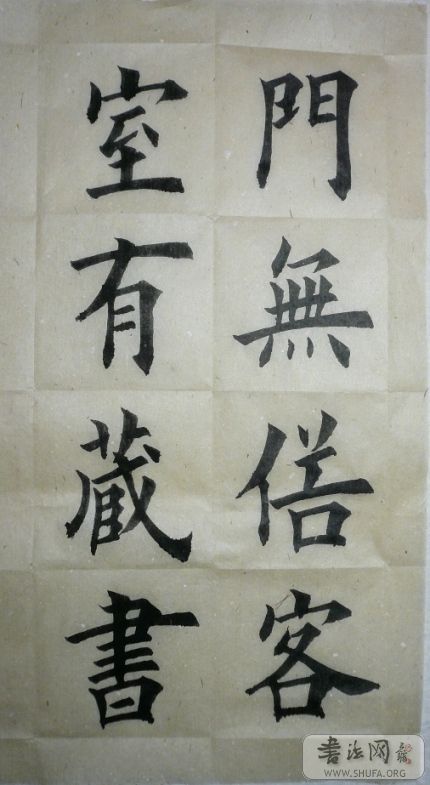 門無俗客
室有蔵書
書法网
WWW.SHUFA.ORG